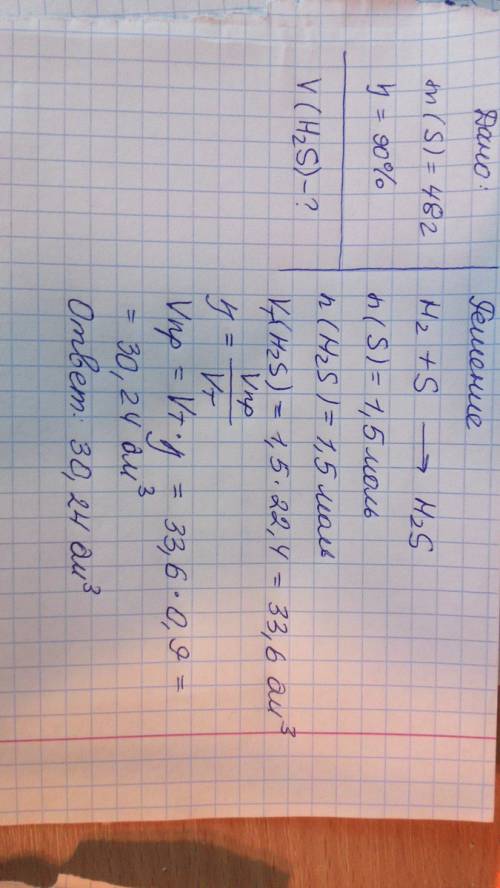 Дано:
m(S) = 48г
η = 90%
V(H₂S) - ?
Решение
H₂ + S ⟶ H₂S
n(S) = 1,5 моль
n(H₂S) = 1,5 моль
Vт(H₂S) = 1,5 · 22,4 = 33,6 дм³
η = Vпр / Vт
Vпр = Vт · η = 33,6 · 0,9 =
= 30,24 дм³
Ответ: 30,24 дм³